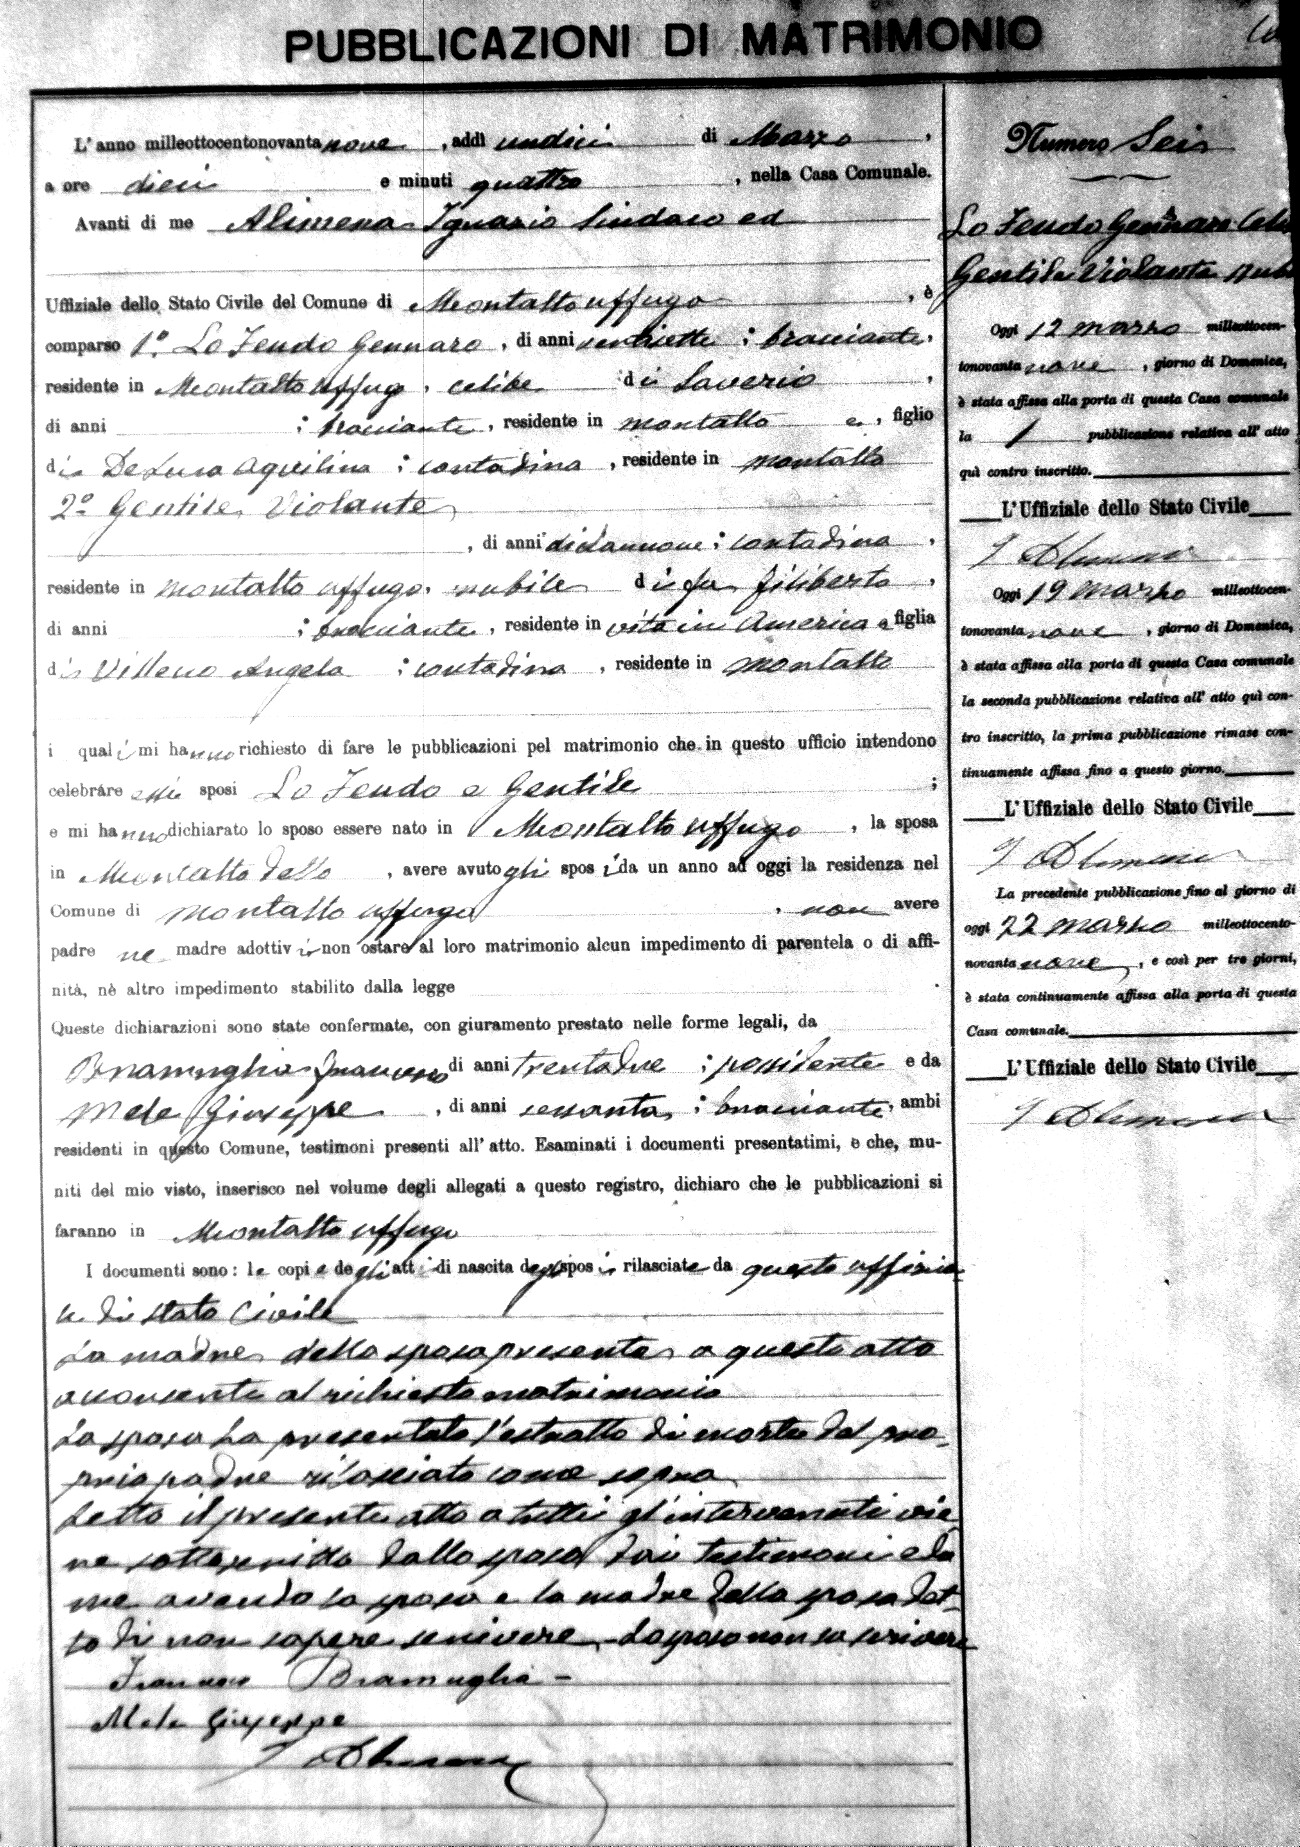 PUBBLICAZIONI DI MATRIMONIO
L'anno milleottocentonovantanove, addì undici di Marzo,
a ore dieci e minuti quattro, nella Casa Comunale.
Avanti di me Alimena Ignazio Sindaco ed
Uffiziale dello Stato Civile del Comune di Montalto Uffugo, è
comparso 1º. Lo Feudo Gennaro, di anni ventisette; bracciante,
residente in Montalto Uffugo, celibe di Saverio,
di anni ; bracciante, residente in Montalto e, figlio
di De Luca Aquilina; contadina, residente in Montalto
2º Gentile Violante
, di anni diciannove; contadina,
residente in Montalto Uffugo, nubile di fu Filiberto,
di anni ; bracciante, residente in vita in America e figlia
di Angela; contadina, residente in Montalto
i quali mi hanno richiesto di fare le pubblicazioni pel matrimonio che in questo ufficio intendono
celebrare essi sposi Lo Feudo e Gentile ;
e mi hanno dichiarato lo sposo essere nato in Montalto Uffugo, la sposa
in Montalto detto, avere avuto gli sposi da un anno ad oggi la residenza nel
Comune di Montalto Uffugo, non avere
padre nè madre adottivi non ostare al loro matrimonio alcun impedimento di parentela o di affi-
nità, nè altro impedimento stabilito dalla legge
Queste dichiarazioni sono state confermate, con giuramento prestato nelle forme legali, da
Bramuglia Francesco di anni trentadue; possidente e da
Mele Giuseppe, di anni sessanta; bracciante, ambi
residenti in questo Comune, testimoni presenti all'atto. Esaminati i documenti presentatimi, e che, mu-
niti del mio visto, inserisco nel volume degli allegati a questo registro, dichiaro che le pubblicazioni si
faranno in Montalto Uffugo
I documenti sono: le copie degli atti di nascita degli sposi rilasciate da questo uffizia
le di stato Civile
La madre della sposa presente a questo atto
acconsente al richiesto matrimonio
La sposa ha presentato l'estratto di morte del pro-
prio padre rilasciato come sopra
Letto il presente atto a tutti gl'intervenuti vie
ne sottoscritto dallo sposo dai testimoni e da
me avendo la sposa e la madre della sposa det-
to di non sapere scrivere - Lo sposo non sa scrivere
Francesco Bramuglia -
Mele Giuseppe
I Alimena
Numero Seis
Lo Feudo Gennaro
Gentile Violante
Oggi 12 marzo milleottocen-
tonovantanove, giorno di Domenica,
è stata affissa alla porta di questa Casa comunale
la 1 pubblicazione relativa all'atto
quì contro inscritto.
L'Uffiziale dello Stato Civile
I Alimena
Oggi 19 marzo milleottocen-
tonovantanove, giorno di Domenica,
è stata affissa alla porta di questa Casa comunale
la seconda pubblicazione relativa all'atto quì con-
tro inscritto, la prima pubblicazione rimase con-
tinuamente affissa fino a questo giorno.
L'Uffiziale dello Stato Civile
I Alimena
La precedente pubblicazione fino al giorno di
oggi 22 marzo milleottocento-
novantanove, e così per tre giorni,
è stata continuamente affissa alla porta di questa
Casa comunale.
L'Uffiziale dello Stato Civile
I Alimena